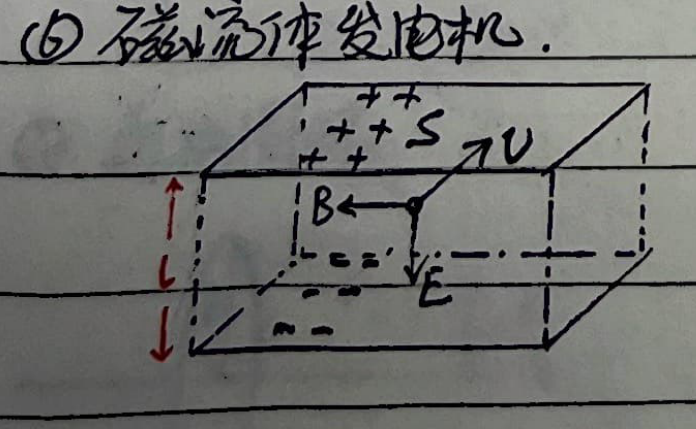 (6) 磁流体发电机.
++
++ S
++
υ
B
L
E